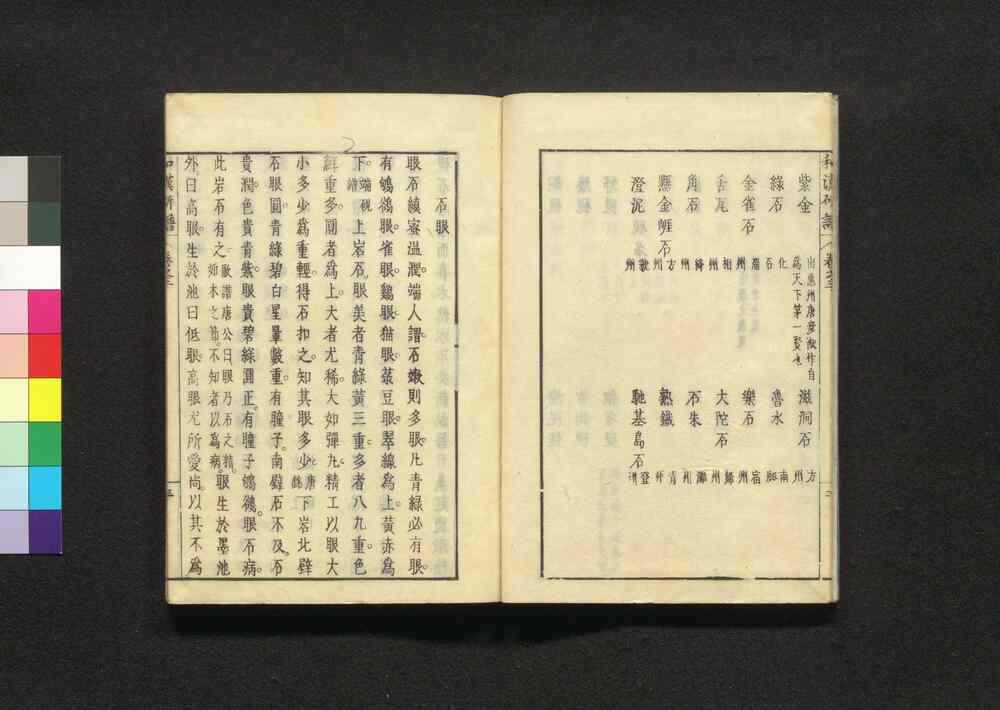 紫金 出惠州唐彥猷作自爲天下第一賢也 滋洞石 方州
綠石 化石 魯水 南
金雀石 州 樂石 宿州
古瓦 相州 大陀石 歸州
角石 絳州 石朱 州
懸金崕石 方州 熟鐵 青州
澄泥 州 馳基島石 登州
石眼
眼石縝密温潤。端人謂石嫩則多眼。凡青綠必有眼。
有鴝鵒眼。雀眼。鷄眼。猫眼。菉豆眼。翠綠爲上。黃赤爲
下。端硯譜 上岩石。眼美者青綠黃三重。多者八九重。色
鮮重多圓者爲上。大者尤稀。大如彈丸。精工以眼大
小多少爲重輕。得石扣之。知其眼多少。唐錄 下岩北壁
石眼圓。青綠碧白。星暈數重。有瞳子。南壁石不及。石
貴潤。色貴青紫。眼貴碧綠圓正。有瞳子鴝鵒眼。石病。
此岩石有之。歐譜唐公曰、眼乃石之精。如木之節。不知者以爲病。眼生於墨池
外。曰高眼。生於池曰低眼。高眼尤所愛尚。以其不爲
和漢硯譜 卷之三